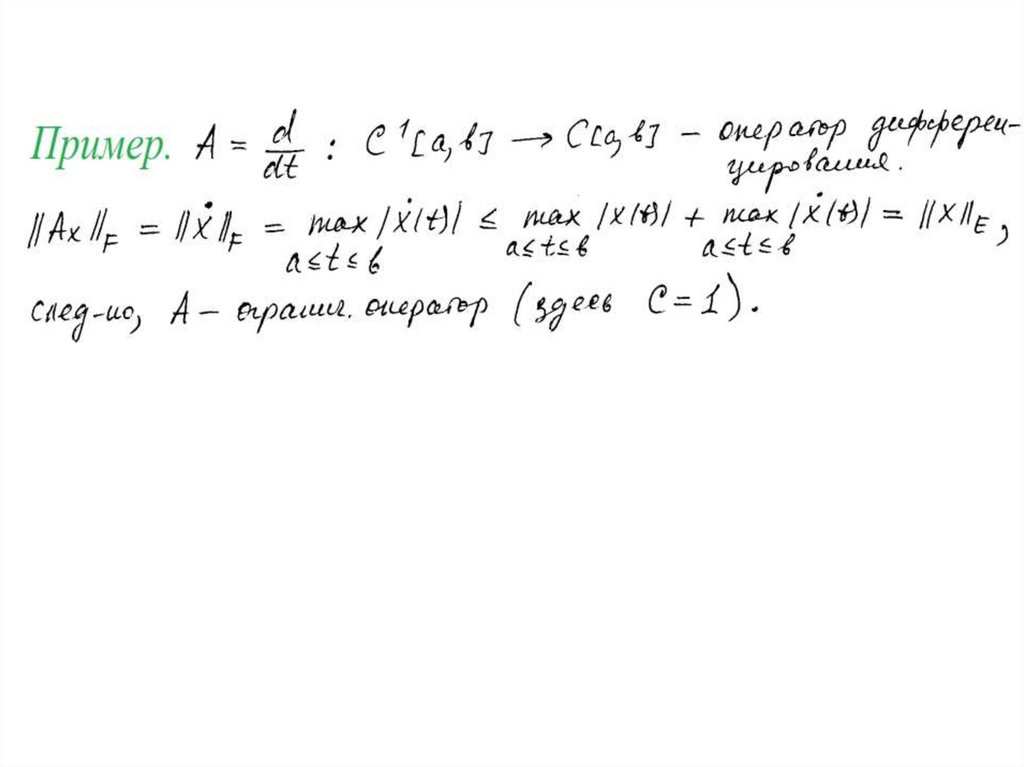 Пример. A = d/dt : C¹[a,b] → C[a,b] – оператор дифферен-
цирования.
||Ax||_F = ||ẋ||_F = max |ẋ(t)| ≤ max |x(t)| + max |ẋ(t)| = ||x||_E,
a≤t≤b a≤t≤b a≤t≤b
след-но, A – огранич. оператор (здесь C = 1).